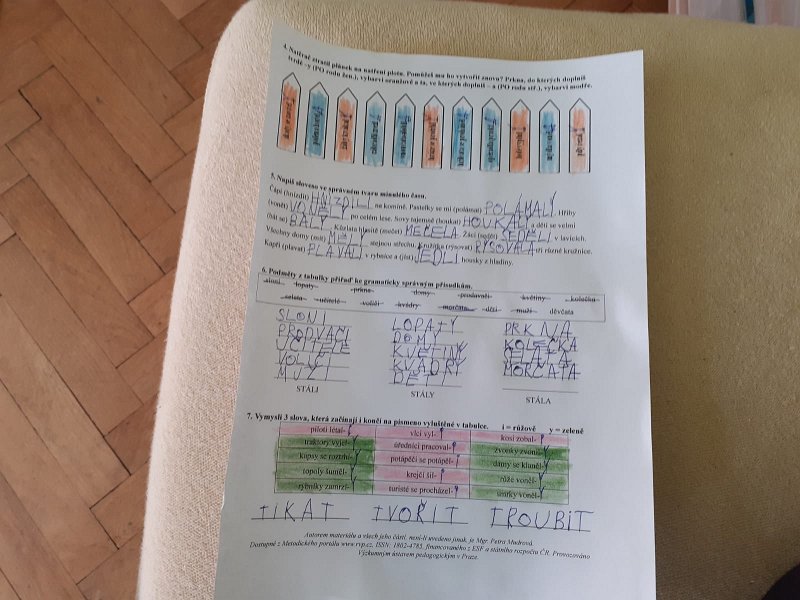 4. Natěrač ztratil plánek na natření plotu. Pomůžeš mu ho vytvořit znovu? Prkna, do kterých doplníš
tvrdé -y (PO rodu žen.), vybarvi oranžově a ta, ve kterých doplníš – a (PO rodu stř.), vybarvi modře.
5. Napiš sloveso ve správném tvaru minulého času.
Čápi (hnízdit) HNÍZDILI na komíně. Pastelky se mi (polámat) POLÁMALY. Hřiby
(vonět) VONĚLY po celém lese. Sovy tajemně (houkat) HOUKALI a děti se velmi
(bát se) BÁLY. Kůzlata hlasitě (mečet) MEČELA. Žáci (sedět) SEDĚLI v lavicích.
Všechny domy (mít) MĚLY stejnou střechu. Kružítka (rýsovat) RÝSOVALA tři různé kružnice.
Kapři (plavat) PLAVALI v rybníce a (jíst) JEDLI housky z hladiny.
6. Podměty z tabulky přiřaď ke gramaticky správným přísudkům.
sloni lopaty prkna domy prodavači květiny kolečka
selata učitelé voliči kvádry morčata děti muži děvčata
SLONI LOPATY PRKNA
PRODVAČI DOMY KOLEČKA
UČITELÉ KVĚTINY SELATA
VOLIČI KVÁDRY MORČATA
MUŽI DĚTI
STÁLI STÁLY STÁLA
7. Vymysli 3 slova, která začínají i končí na písmeno vyluštěné v tabulce. i = růžově y = zeleně
piloti létal- vlci vyl- kosi zobal-
traktory vyjel- úředníci pracoval- zvonky zvonil-
kapsy se roztrhl- potápěči se potápěl- dámy se klaněl-
topoly šuměl- krejčí šil- růže voněl-
rybníky zamrzl- turisté se procházel- smrky voněl-
TIKAT TVOŘIT TROUBIT
Autorem materiálu a všech jeho částí, není-li uvedeno jinak, je Mgr. Petra Mudrová.
Dostupné z Metodického portálu www.rvp.cz, ISSN: 1802-4785, financovaného z ESF a státního rozpočtu ČR. Provozováno
Výzkumným ústavem pedagogickým v Praze.